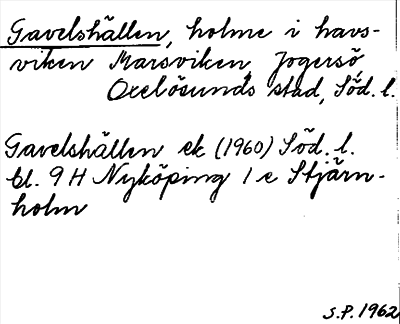 Gavelshällen, holme i havs-
viken Marsviken, Jogersö,
Oxelösunds stad, Söd. l.
Gavelshällen ek (1960) Söd. l.
bl. 9 H Nyköping 1 e Stjärn-
holm
S.P. 1962